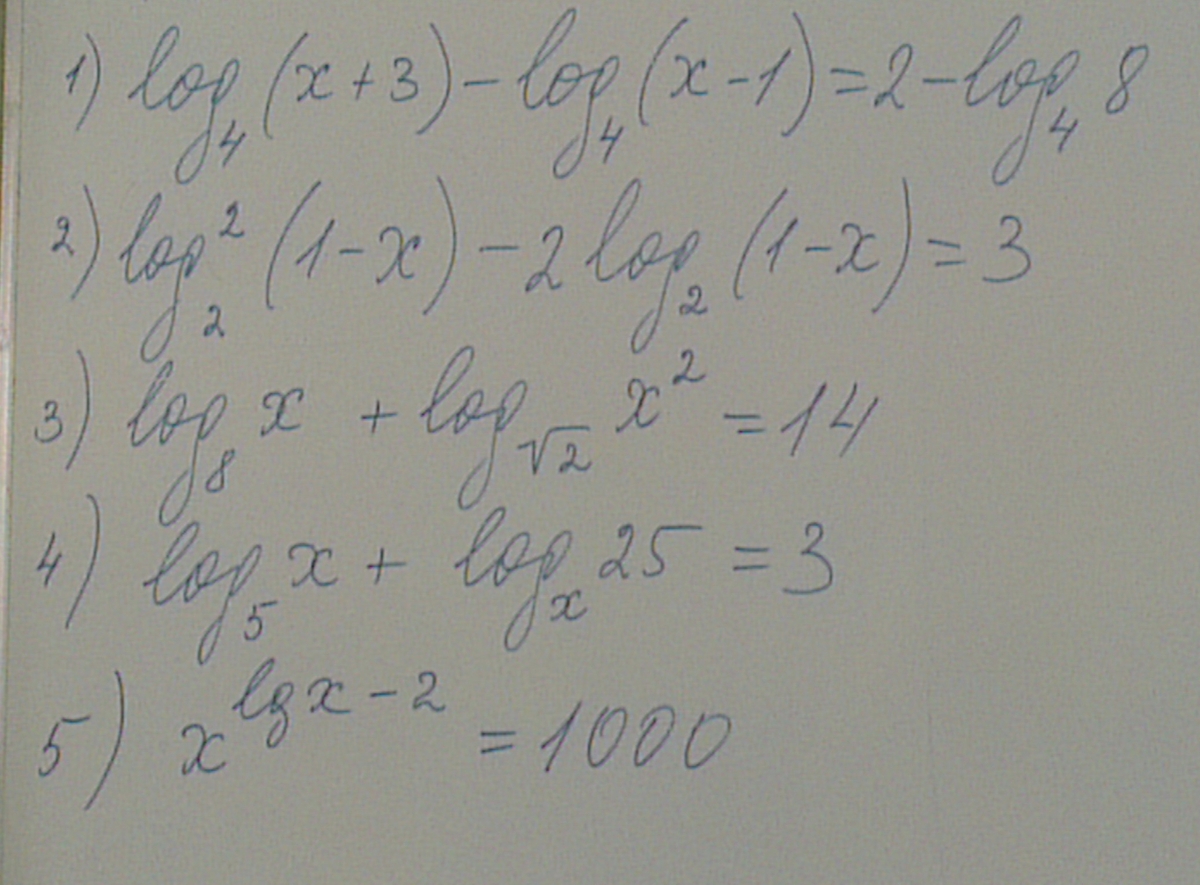 1) log₄(x+3) - log₄(x-1) = 2 - log₄8
2) log₂²(1-x) - 2log₂(1-x) = 3
3) log₈x + log_√2 x² = 14
4) log₅x + logₓ25 = 3
5) x^(lgx-2) = 1000